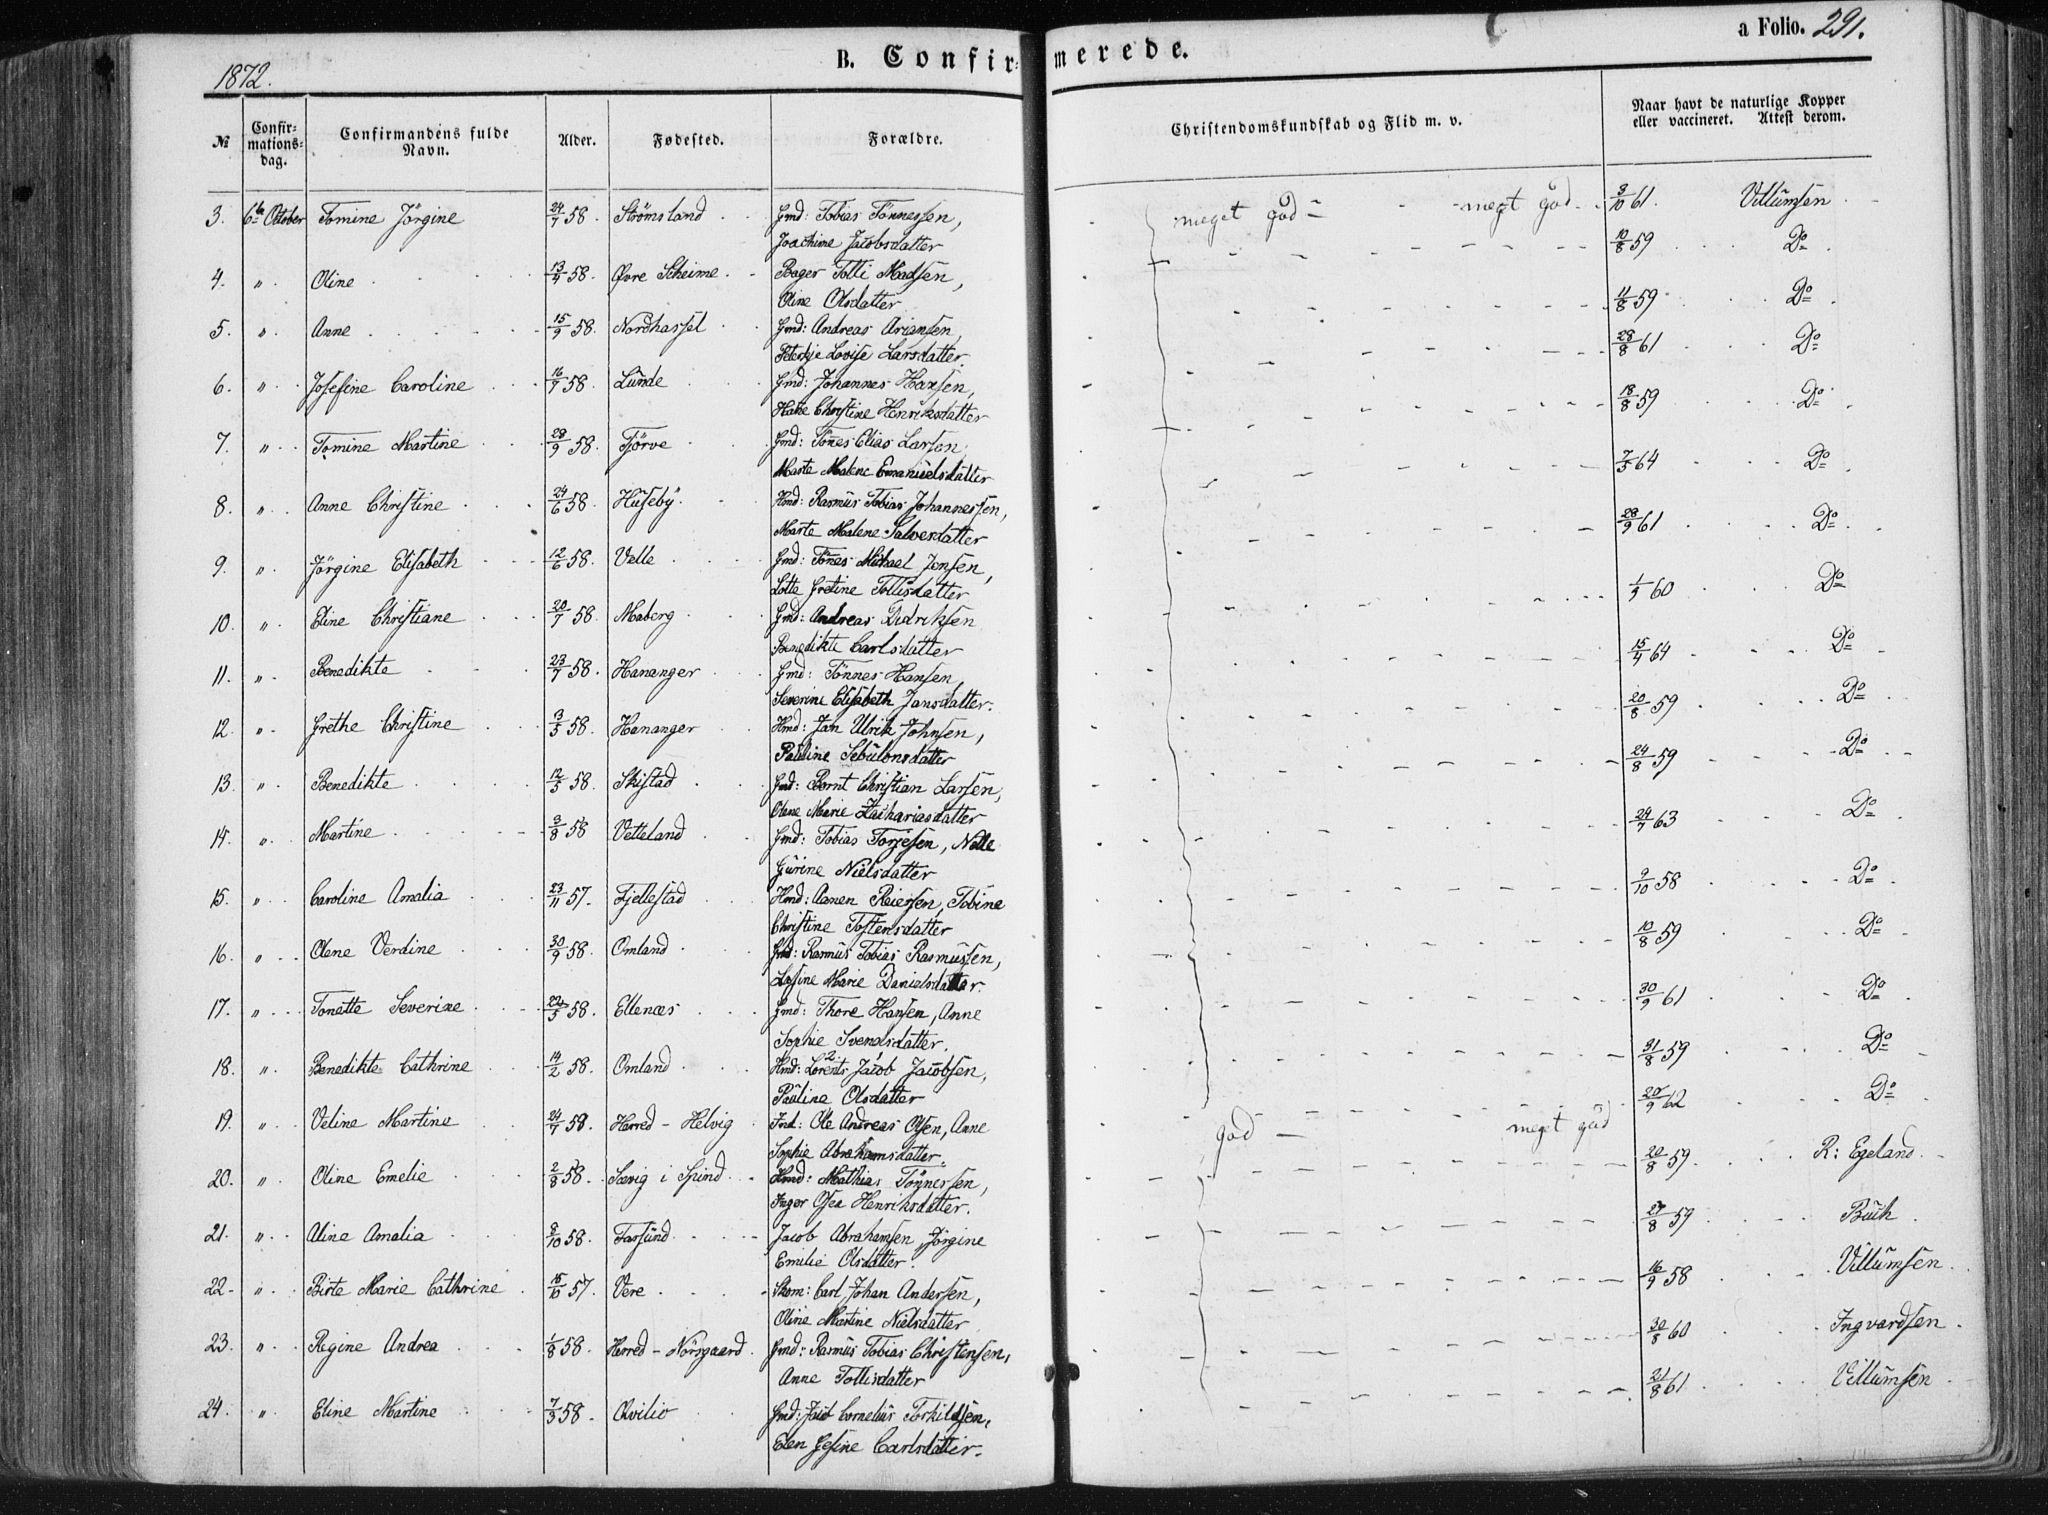 1872.
B. Confirmerede.
a Folio. 291.
№ Confirmations-dag. Confirmandens fulde Navn. Alder. Fødested. Forældre. Christendomskundskab og Flid m. v. Naar havt de naturlige Kopper eller vaccineret. Attest derom.
3. 6te October Tomine Jörgine 24/7 58. Strømsland Gmd: Tobias Tönnessen, meget god meget god 3/10 61. Villumsen
Joachime Jacobsdatter
4. " Oline 13/4 58. Øvre Skeime Bager Tolli Madsen, 10/8 59 Do
Oline Olsdatter
5. " Anne 15/9 58. Nordhassel Gmd: Andreas Ariansen, 11/8 59 Do
Peterkje Lovise Larsdatter.
6. " Josefine Caroline 16/7 58. Lunde Gmd: Johannes Hansen, 28/8 61 Do
Christine Henriksdatter
7. " Tomine Martine 28/9 58. Tjörve Gmd: Tönes Elias Larsen, 18/8 59 Do
Marte Malene Emanuelsdatter
8. " Anne Christine 24/6 58. Huseby Hmd: Rasmus Tobias Johannessen, 7/5 64 Do
Marte Malene Salvesdatter
9. " Jörgine Elisabeth 12/6 58. Velle Gmd: Tönes Michael Jensen, 28/9 61 Do
Lotte Gretine Tollisdatter
10. " Eline Christiane 20/7 58. Maberg Gmd: Andreas Didriksen 60 Do
Benedikte Carlsdatter
11. " Benedikte 23/7 58. Hananger Gmd: Tönnes Hansen, 15/4 64 Do
Severine Elisabeth Jansdatter.
12. " Grethe Christine 3/5 58. Hananger Hmd: Jan Ulrik Johnsen, 20/8 59 Do
Pauline Sebulonsdatter
13. " Benedikte 12/5 58. Skistad Gmd: Bernt Christian Larsen, 24/8 59 Do
Olene Marie Zachariasdatter
14. " Martine 3/8 58 Vetteland Gmd: Tobias Torjesen, Nelle 24/7 63 Do
Gurine Nielsdatter
15. " Caroline Amalia 23/11 57. Fjellestad Hmd: Aanen Reiersen, Tobine 9/10 58 Do
Christine Tostensdatter
16. " Olene Verdine 30/9 58. Omland Gmd: Rasmus Tobias Rasmussen, 10/8 59 Do
Lasine Marie Danielsdatter.
17. " Tonette Severine 22/5 58. Ellenæs Gmd: Thore Hansen, Anne 30/9 61 Do
Sophie Svendsdatter.
18. " Benedikte Cathrine 14/2 58. Omland Hmd: Lorents Jacob Jacobsen, 31/8 59 Do
Pauline Olsdatter
19. " Veline Martine 24/7 58. Herred - Helvig Ole Andreas Olsen, Anne god meget god 20/9 62 Do
Sophie Abrahamsdatter.
20. " Oline Emelie 2/8 58. Sævig i Spind Hmd: Mathias Tönnessen, 20/8 59. R: Egeland
Inger Osea Henriksdatter.
21. " Aline Amalia 8/10 58. Farsund Jacob Abrahamsen, Jörgine 27/8 59 Buch
Emilie Olsdatter.
22 " Birte Marie Cathrine 15/10 57. Vere Skom: Carl Johan Andersen, 16/9 58 Villumsen
Oline Martine Nielsdatter
23. " Regine Andrea 1/8 58. Herred - Norsgaard Gmd: Rasmus Tobias Christensen, 30/8 60 Ingvardsen
Anne Tollisdatter
24. " Eline Martine 7/3 58 Qvilio Gmd: Jacob Cornelius Torkildsen, 21/8 61 Villumsen
Elen Gesine Carlsdatter.